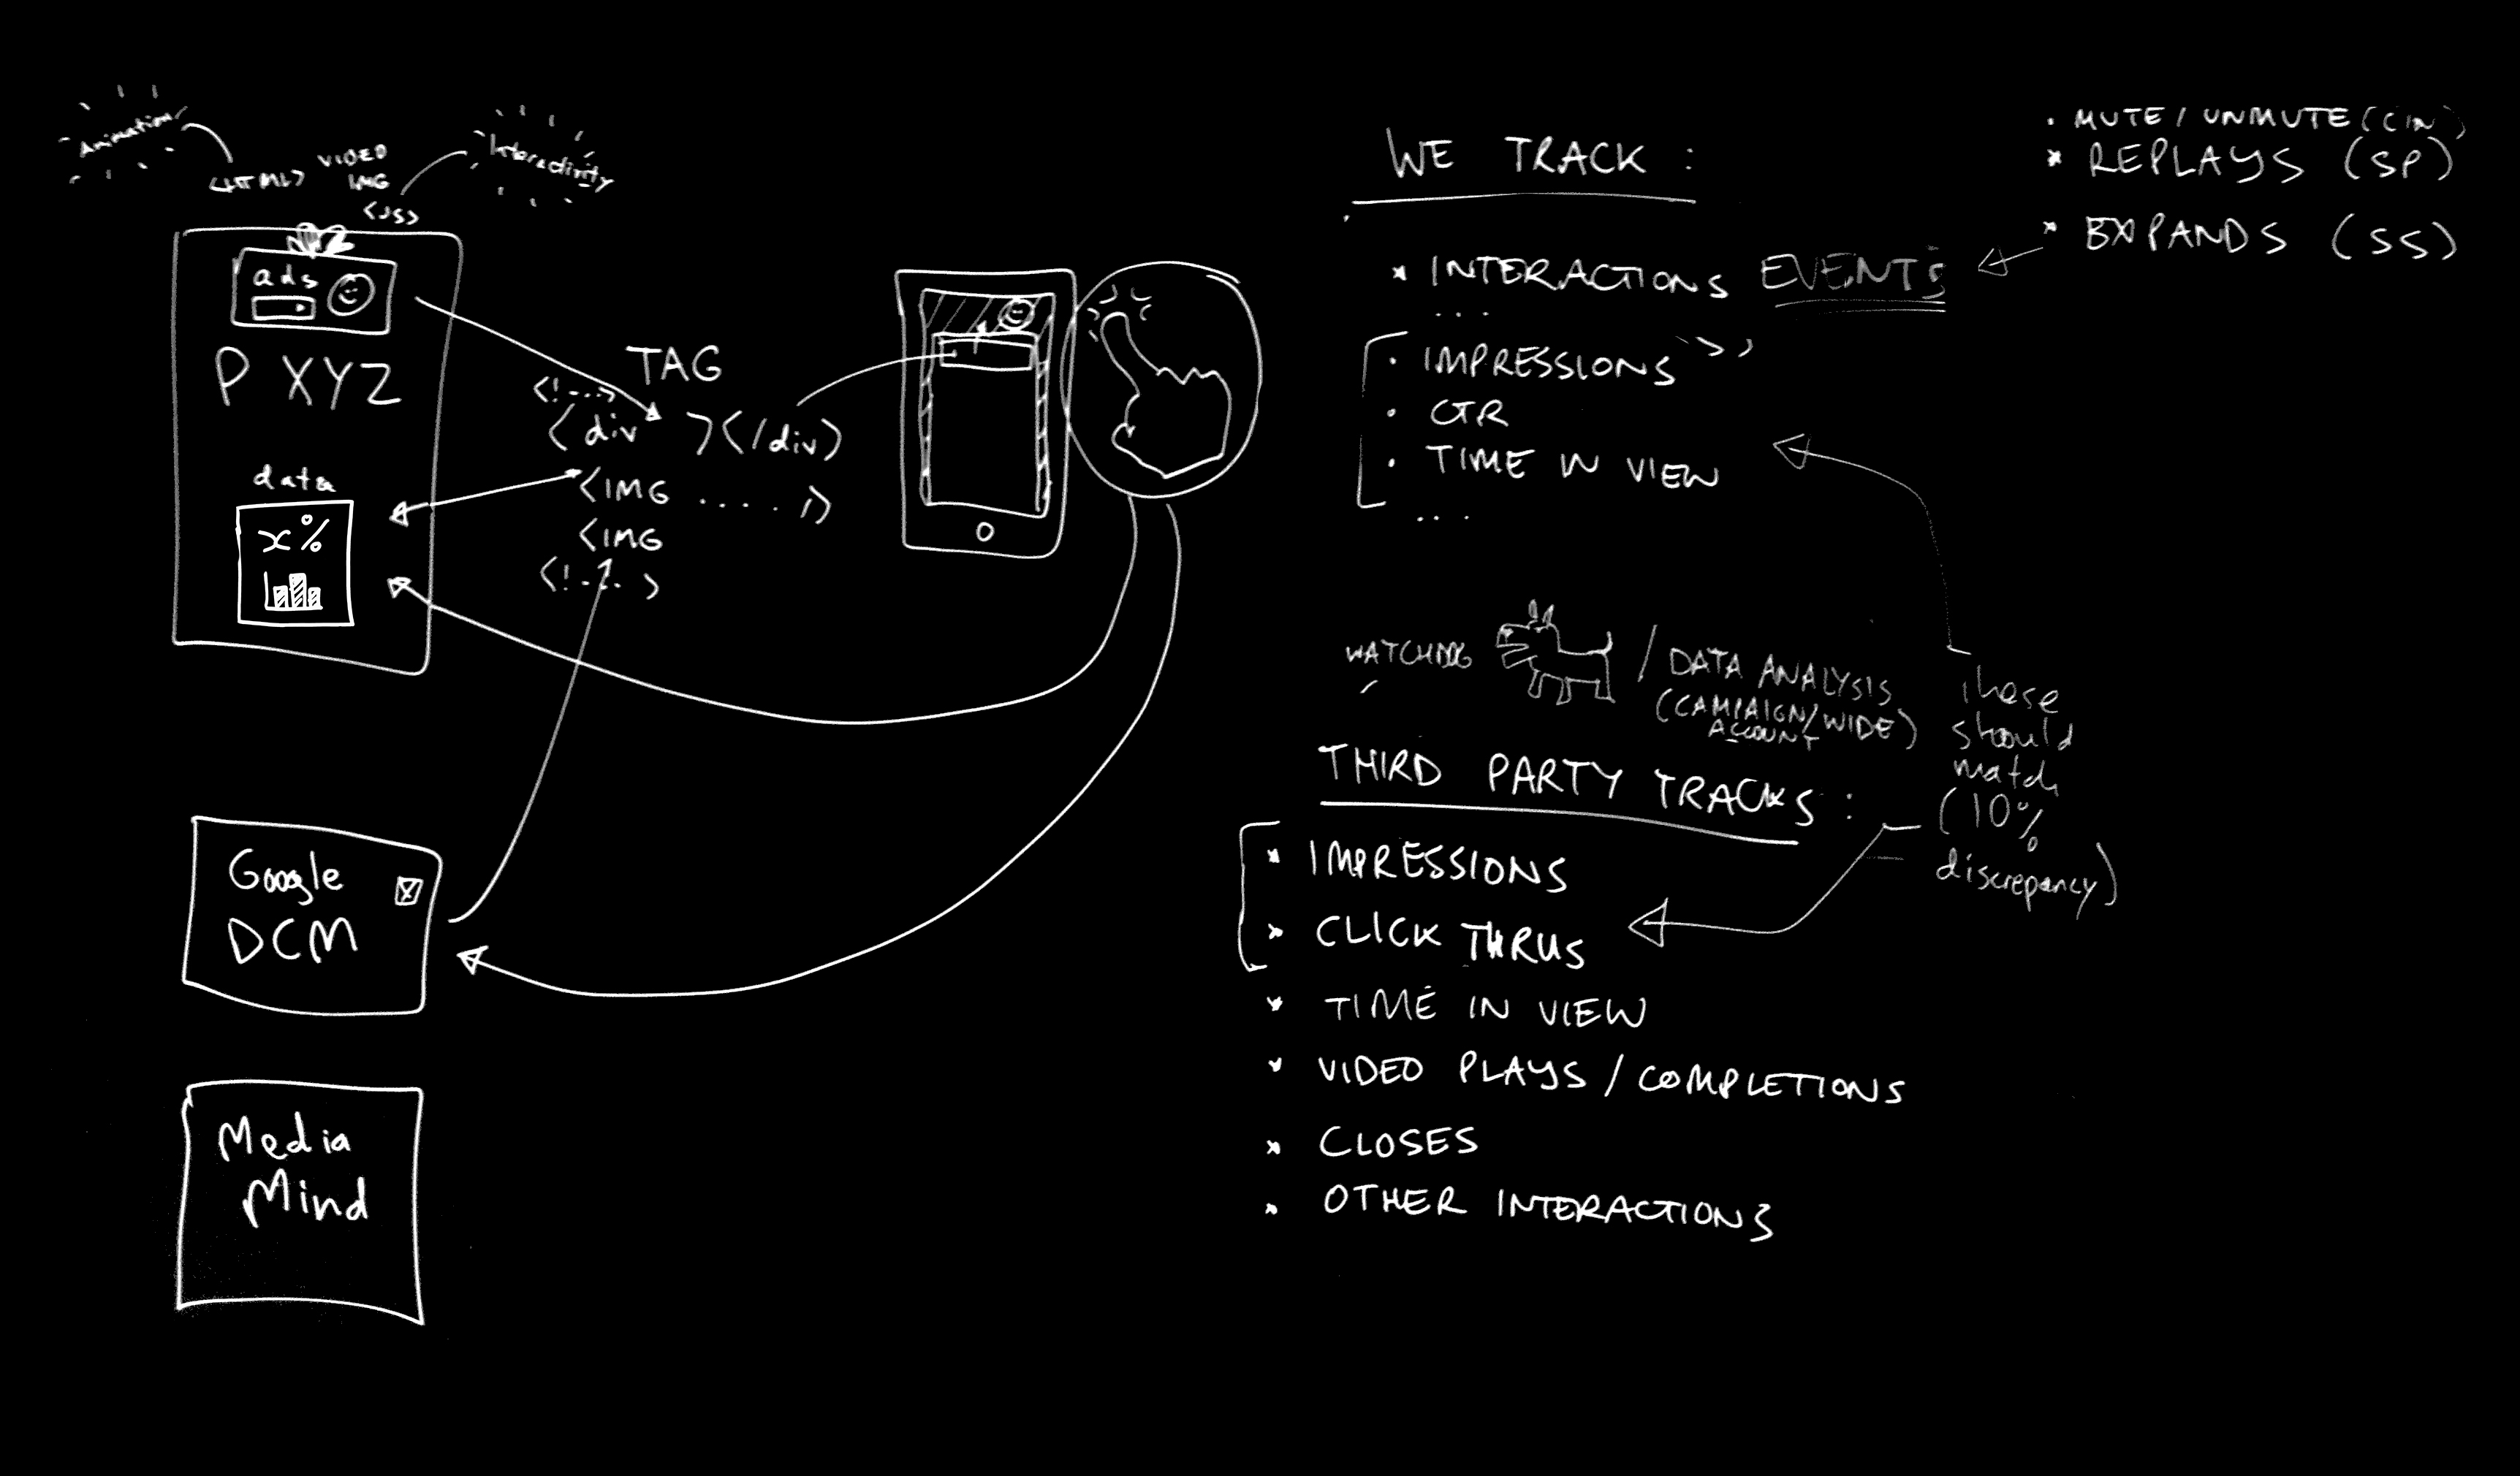 Animation
Interactivity
<HTML>
VIDEO
IMG
<JS>
ads
P XYZ
data
x%
TAG
<!--->
<div ></div>
<IMG ..... />
<IMG
<!-- >
Google
DCM
Media
Mind
WE TRACK :
* INTERACTIONS EVENTS
...
• IMPRESSIONS
• CTR
• TIME IN VIEW
...
• MUTE / UNMUTE (CIN)
* REPLAYS (SP)
* EXPANDS (SS)
WATCHDOG / DATA ANALYSIS
(CAMPAIGN/WIDE)
ACCOUNT
These
should
match
(10%
discrepancy)
THIRD PARTY TRACKS :
* IMPRESSIONS
* CLICK THRUS
* TIME IN VIEW
* VIDEO PLAYS / COMPLETIONS
* CLOSES
* OTHER INTERACTIONS